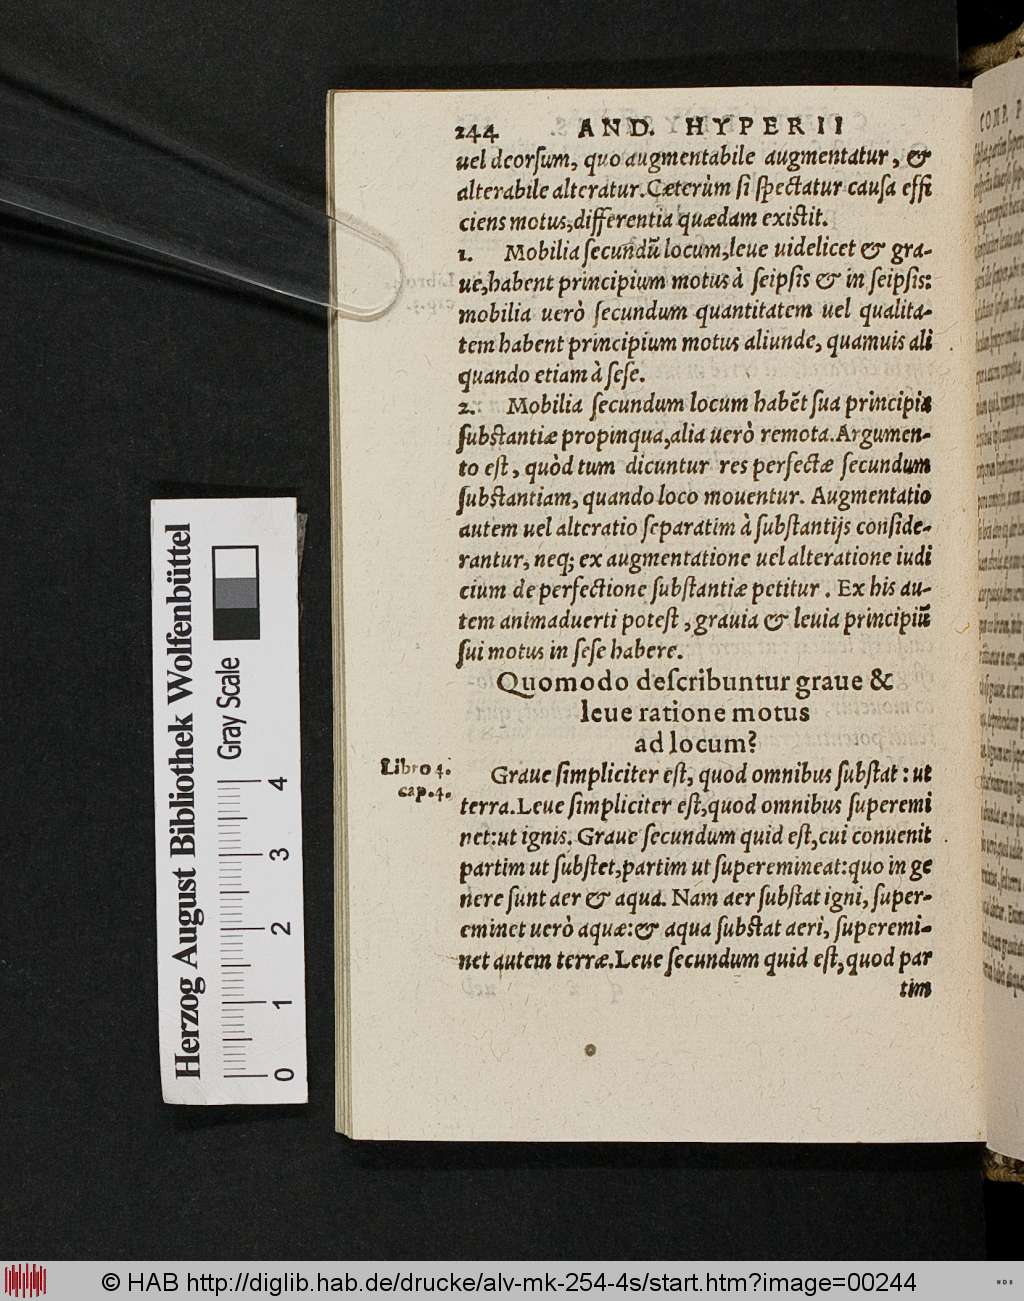 244 AND. HYPERII
uel deorſum, quo augmentabile augmentatur, &
alterabile alteratur. Cæterùm ſi ſpectatur cauſa effi
ciens motus, differentia quædam exiſtit.
1. Mobilia ſecundũ locum, leue uidelicet & gra-
ue, habent principium motus à ſeipſis & in ſeipſis:
mobilia uerò ſecundum quantitatem uel qualita-
tem habent principium motus aliunde, quamuis ali
quando etiam à ſeſe.
2. Mobilia ſecundum locum habẽt ſua principia
ſubſtantiæ propinqua, alia uerò remota. Argumen-
to eſt, quòd tum dicuntur res perfectæ ſecundum
ſubſtantiam, quando loco mouentur. Augmentatio
autem uel alteratio ſeparatim à ſubſtantijs conſide-
rantur, neq; ex augmentatione uel alteratione iudi
cium de perfectione ſubſtantiæ petitur. Ex his au-
tem animaduerti poteſt, grauia & leuia principiũ
ſui motus in ſeſe habere.
Quomodo deſcribuntur graue &
leue ratione motus
ad locum?
Libro 4.
cap.4.
Graue ſimpliciter eſt, quod omnibus ſubſtat: ut
terra. Leue ſimpliciter eſt, quod omnibus ſuperemi
net: ut ignis. Graue ſecundum quid eſt, cui conuenit
partim ut ſubſtet, partim ut ſuperemineat: quo in ge
nere ſunt aer & aqua. Nam aer ſubſtat igni, ſuper-
eminet uerò aquæ: & aqua ſubſtat aeri, ſuperemi-
net autem terræ. Leue ſecundum quid eſt, quod par
tim
COMP. P
Herzog August Bibliothek Wolfenbüttel
Gray Scale
0 1 2 3 4
© HAB http://diglib.hab.de/drucke/alv-mk-254-4s/start.htm?image=00244